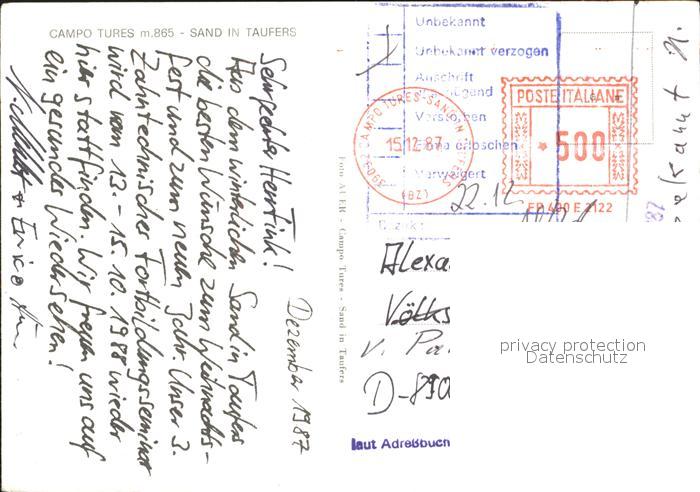 CAMPO TURES m.865 - SAND IN TAUFERS
Dezember 1987
Sehrgeehrter Herr Fink!
Aus dem winterlichen Sand in Taufers
die besten Wünsche zum Weihnachts-
fest und zum neuen Jahr. Unser 3.
Zahntechnisches Fortbildungsseminar
wird vom 13. - 15.10. 1988 wieder
hier stattfinden. Wir freuen uns auf
ein gesundes Wiedersehen!
Foto AUER - Campo Tures - Sand in Taufers
Unbekannt
Unbekannt verzogen
Anschrift
Verstorben
Firma erloschen
Verweigert
39032 CAMPO TURES-SAND IN TAUFERS
15.12.87
(BZ)
POSTE ITALIANE
500
22.12
Bezirk:
Alexa
Völks
v. Pa
D-890
laut Adreßbuch
privacy protection
Datenschutz